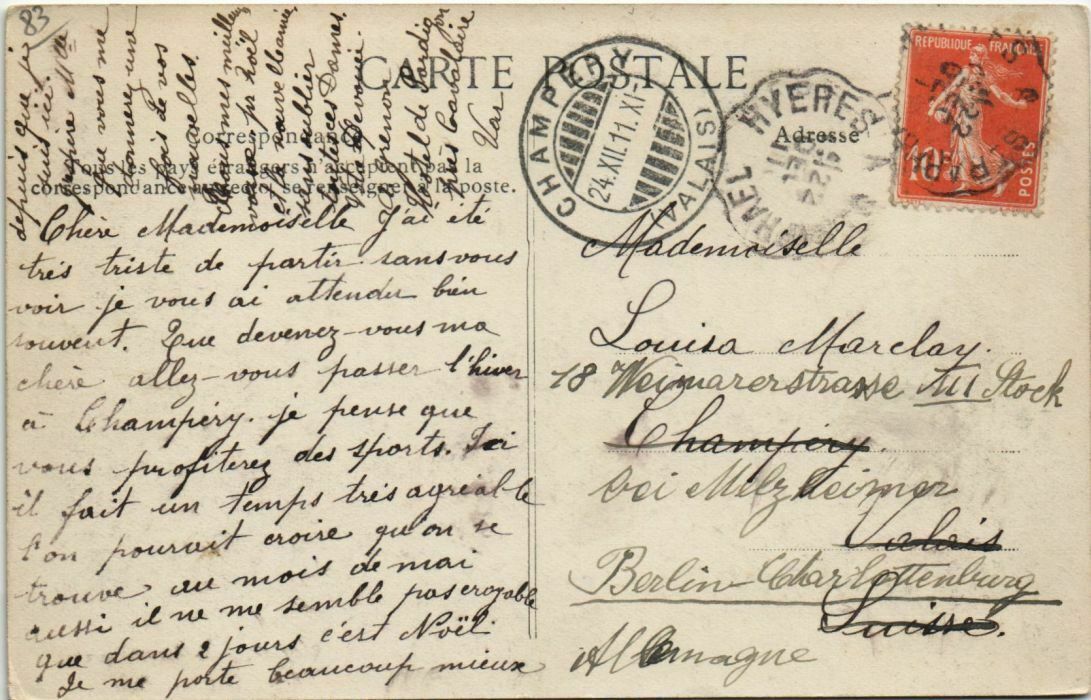 83
CARTE POSTALE
Correspondance
Tous les pays étrangers n'acceptent pas la
correspondance au recto, se renseigner à la poste.
Adresse
Chère Mademoiselle J'ai été
très triste de partir sans vous
voir je vous ai attendu bien
souvent. Que devenez-vous ma
chère allez-vous passer l'hiver
à Champéry. je pense que
vous profiterez des sports. Ici
il fait un temps très agréable
l'on pourait croire qu'on se
trouve au mois de mai
aussi il ne me semble pas croyable
que dans 2 jours c'est Noël.
Je me porte beaucoup mieux
depuis que je
suis ici.
que vous me
donnerez une
fois de vos
nouvelles.
mes meilleurs
vœux pr noël
et la nouvelle année
sans oublier
ces Dames
Vernon
Hotel de Pardigon
près Cavalaire
Var
CHAMPÉRY (VALAIS)
24.XII.11.XI
HYERES
RÉPUBLIQUE FRANÇAISE
10c
POSTES
Mademoiselle
Louisa Marclay.
18 Weimarerstrasse III Stock
Champéry.
bei Milzheimer
Valais
Berlin-Charlottenburg
Suisse.
Allemagne